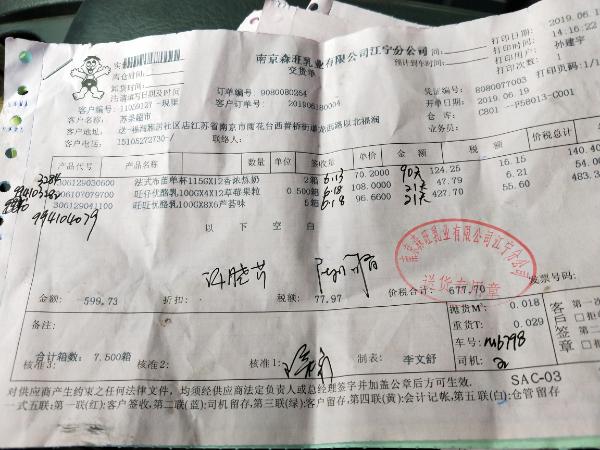 南京森旺乳业有限公司江宁分公司
交货单
离仓时间:
卸货时间:
预计到车时间:
打印日期: 2019.06.1
打印时间: 14:16:22
打印人员: 孙建宇
打印次数: 1
打印页码: 1/1
客户编号: 11050127
订单编号: 9080080254
凭证编号: 8080077003
客户名称: 苏果超市
客户订单号: 201906180004
开单日期: 2019.06.19
仓位: C801 --P58013-C001
联络人:
客户电话: 15105272730-/
产品代号 产品名称 数量 单位 单价 金额 税额 价税总计
3284
306129030600 法式布蕾单杯115GX12香浓炼奶 2箱 6.13 70.2000 90天 124.25 16.15 140.40
旺仔优酪乳100GX4X12草莓果粒 0.500箱 6.18 21天 47.79 6.21 54.00
306129041100 旺旺优酪乳100GX8X6芦荟味 5箱 6.18 96.6600 21天 427.70 55.60 483.3
994104079
以下空白
南京森旺乳业有限公司江宁分公司
送货专用章
金额: 599.73 折扣: 税额: 77.97 价税合计: 677.70 发票号码:
备注:
抛货M³: 0.018
重货T: 0.029
车号: m6798
司机:
客户签章
合计箱数: 7.500箱
核准3: 核准2: 核准1: 制表: 李文舒
对供应商产生约束之任何法律文件，均须经供应商法定负责人或总经理签字并加盖公章后方可生效。
SAC-03
一式五联:第一联(红):客户签收,第二联(蓝):司机留存,第三联(绿):客户留存,第四联(黄):会计记帐,第五联(白):仓管留存